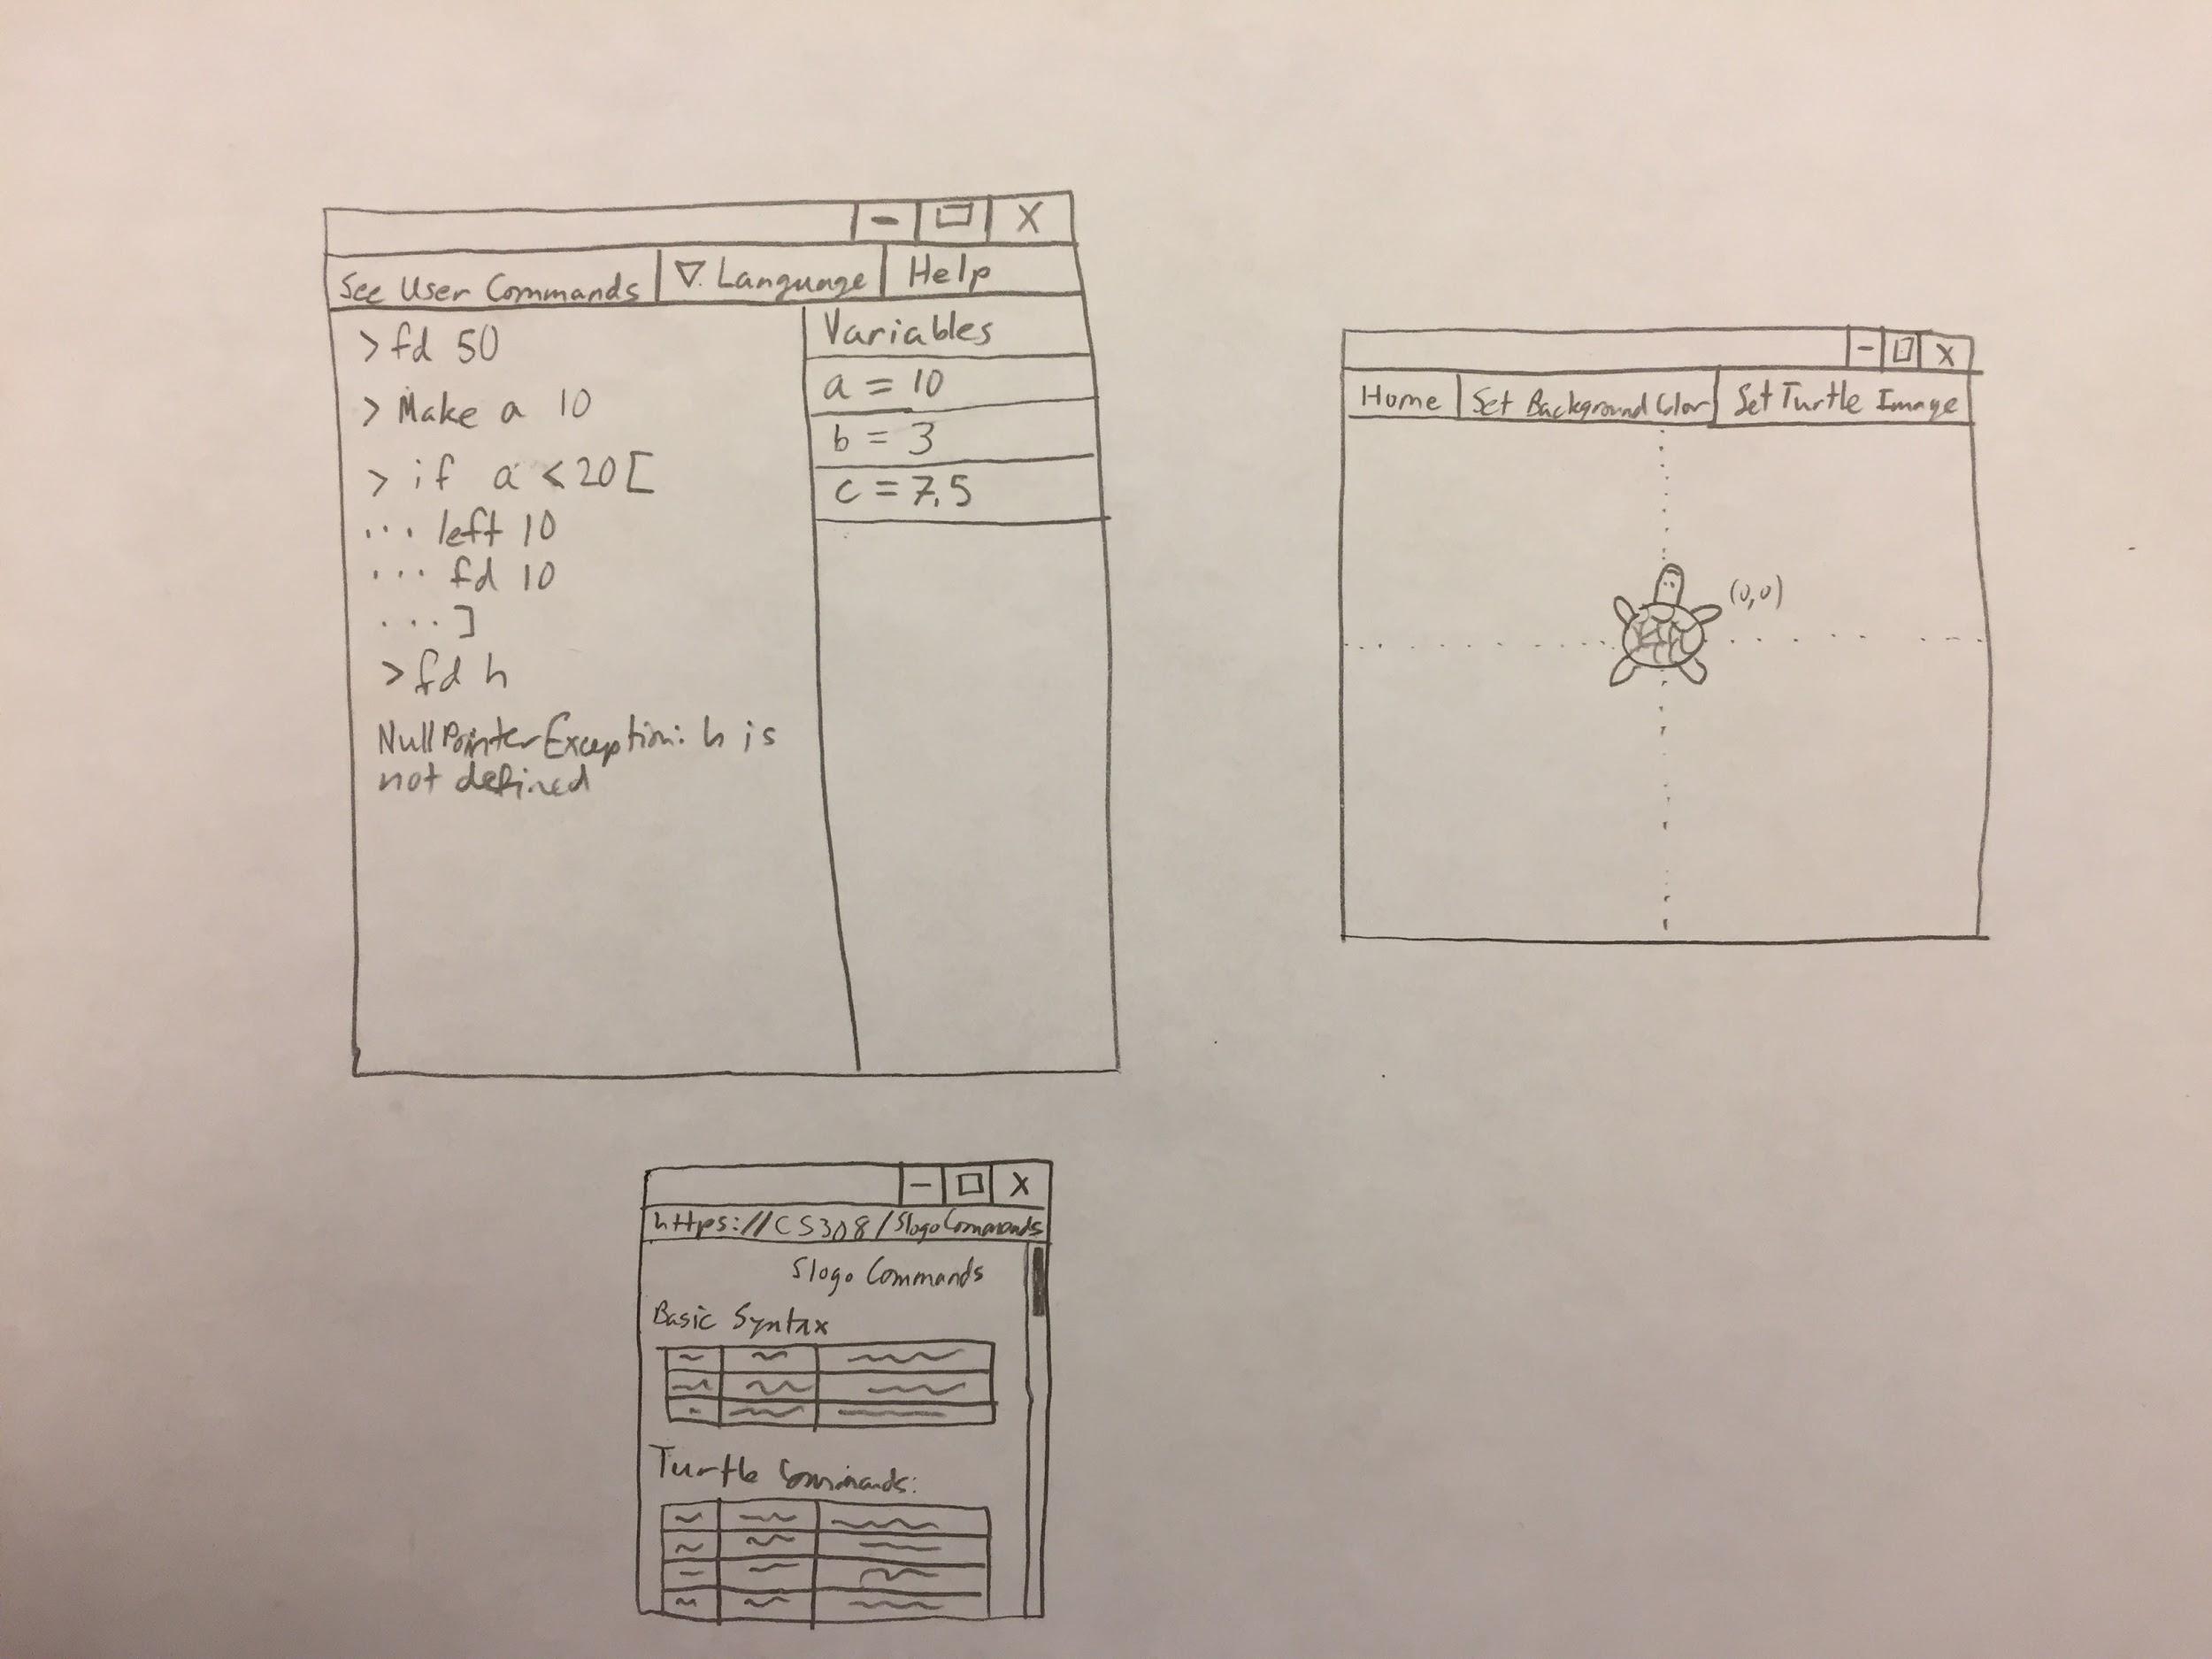 - □ X
See User Commands ▽ Language Help
> fd 50
> Make a 10
> if a < 20 [
... left 10
... fd 10
... ]
> fd h
NullPointerException: h is
not defined
Variables
a = 10
b = 3
c = 7.5
- □ X
Home Set Background Color Set Turtle Image
(0,0)
- □ X
https://CS308/SlogoCommands
Slogo Commands
Basic Syntax
Turtle Commands: